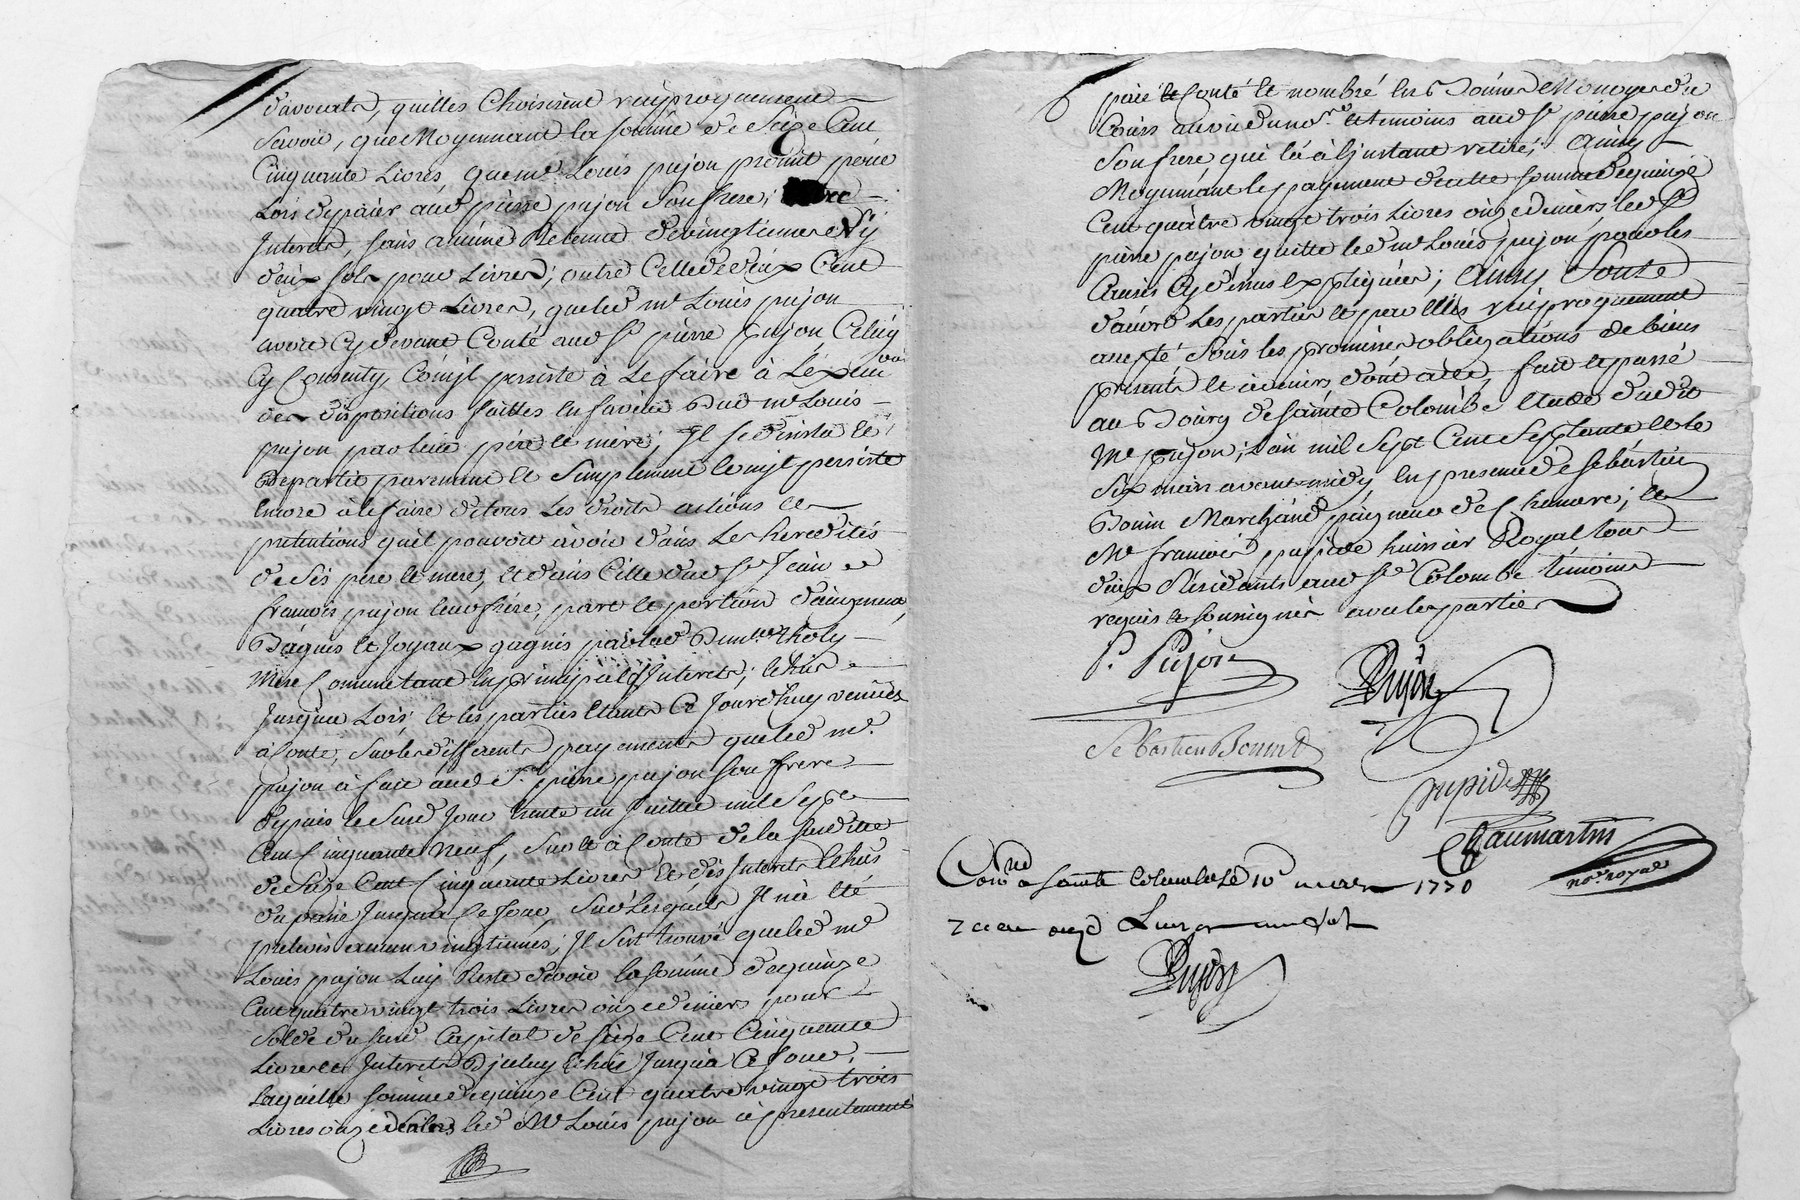 d'avocats, quilles Choisirent reciproquement
Savoir, que Moyennant la somme de Seize Cent
Cinquante Livres, que me. Louis pujon promit peié
Lors de paier aud pierre pujon Son frere;
Interets, sans aucune Retenue de vingtiemes Ny
deux sols pour Livres; outre Celle de deux Cent
quatre vingt Livres, que led mr. Louis pujon
avoit Cy devant Conté aud Sr. pierre pujon Celuy
Cy Consenty, Comme il persiste à Le faire à
des dispositions faittes en faveur dud mr Louis
pujon par leur pere et mere; Il se desista et
departit purement et Simplement Comme il persiste
encore à le faire de tous Les droits actions et
pretentions qu'il pouvoit avoir dans Les heredités
de Ses pere et mere, et dans Celle dud Sr. Jean
francois pujon leur frere, part et portion d'augment,
Bagues et Joyaux gagnés par lad tholy
Mere Commune tant en principal qu'Interets; échus
Jusqu'au Lors; et les parties étants Ce Jourd'huy venües
à Conte, Sur les differents payements que led me.
pujon à fait aud Sr. pierre pujon Son frere
depuis le Susd Jour trente un Juillet mil Sept
Cent Cinquante Neuf, Sur et à Conte de la susditte
de Seize Cent Cinquante Livres et des Interets échus
du depuis Jusqu'à Ce Jour, Sur Lesquels Il n'a été
prelevé aucuns vingtiemes; Il s'est trouvé que led me
Louis pujon Luy Reste devoir la somme de quinze
Cent quatre vingt trois Livres onze deniers pour
Solde du susd Capital de seize Cent Cinquante
Livres et Interets D'jceluy échus Jusqu'à Ce Jour,
Laquelle somme de quinze Cent quatre vingt trois
Livres onze deniers led Me Louis pujon à presentement
paié Conté et nombré en Bonnes Monoyes du
Cours au vü de nous nore. et temoins aud Sr pierre pujon
Son frere, qui la à l'jnstant retiré; Ainsy
Moyennant le payement de cette somme de quinze
Cent quatre vingt trois Livres onze deniers led Sr
pierre pujon quitte led me Louis pujon pour les
Causes Cy dessus expliquées; Ainsy Conté
d'accord Les parties et par Elles reciproquement
accepté Sous les promisses obligations de biens
presents et à venirs dont acte, fait et passé
au Bourg de Sainte Colombe étude dudit
Me pujon; L'an mil Sept Cent Septante et le
Six mars avant midy en presence de Sebastien
Bonin Marchand paigneur de Chanvre; et
Me francois pupide huissier Royal tous
deux Residants aud Ste Colombe témoins
requis et soussignés avec les parties
P. Pujon
Pujon
Sebastien Bonin
pupide
Chaumartin
nore. royal
Conné. a sainte Colombe le 10 mars 1770
Pujon